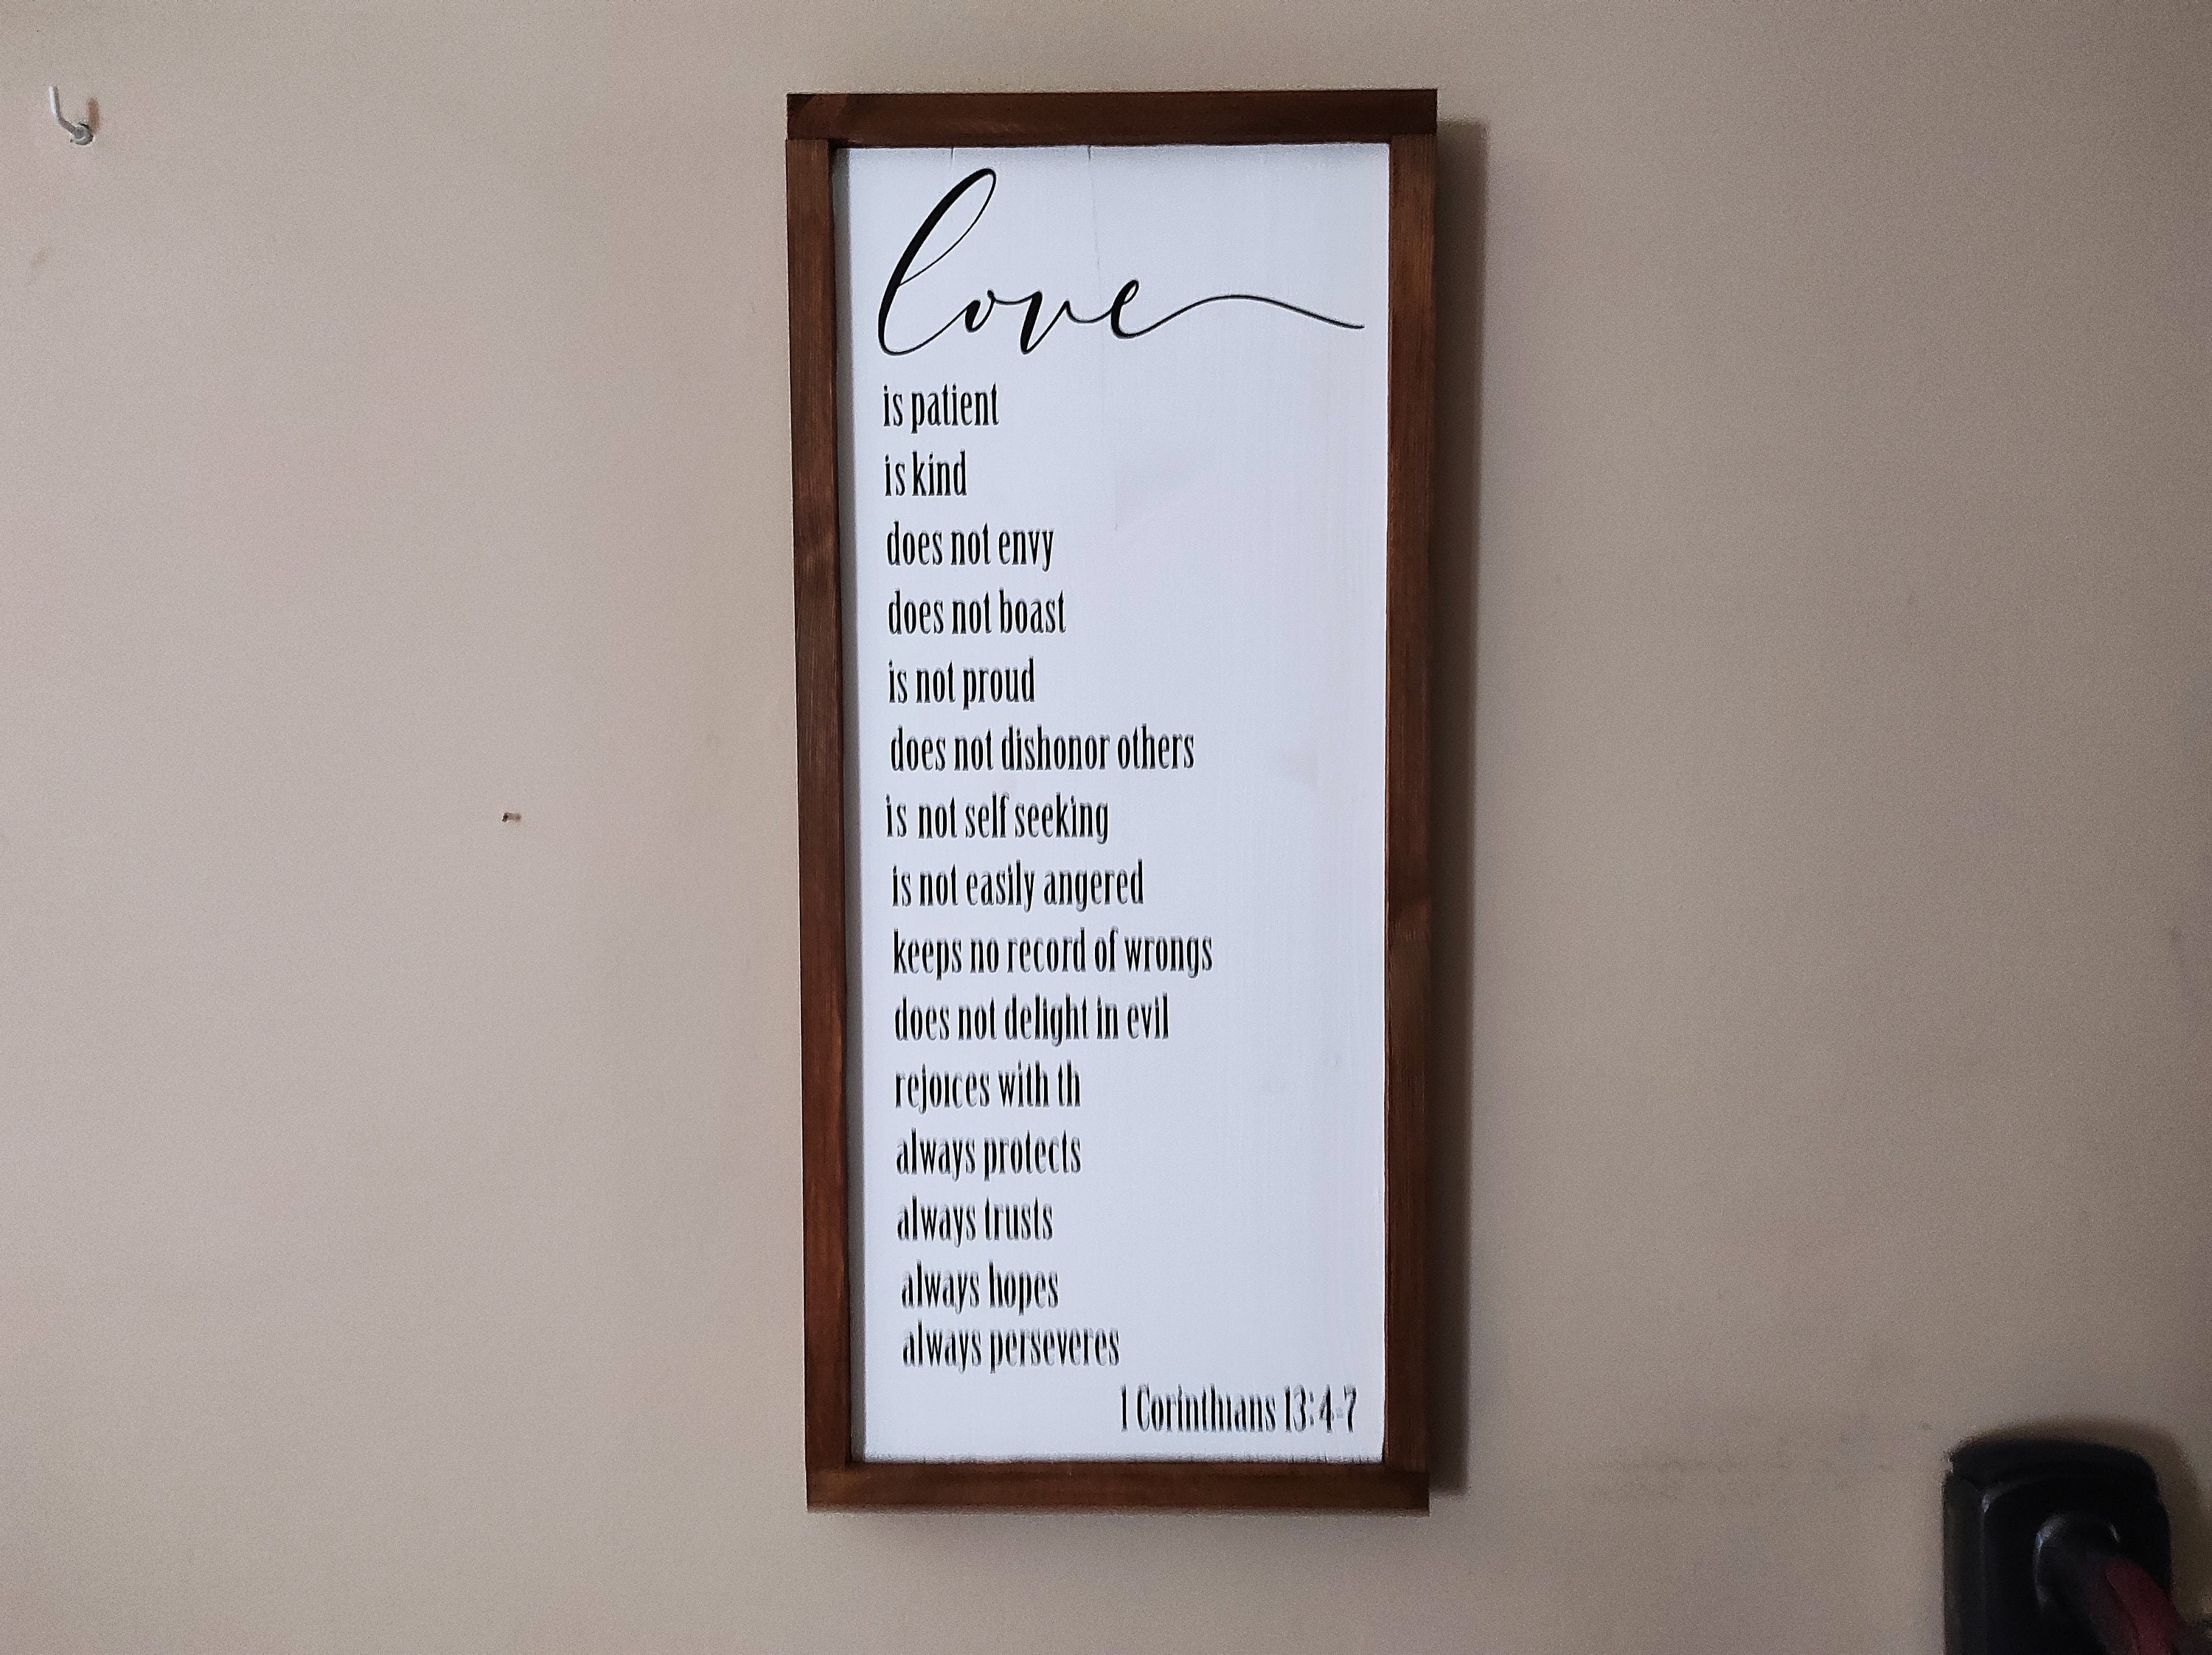 love
is patient
is kind
does not envy
does not boast
is not proud
does not dishonor others
is not self seeking
is not easily angered
keeps no record of wrongs
does not delight in evil
rejoices with th
always protects
always trusts
always hopes
always perseveres
1 Corinthians 13:4-7